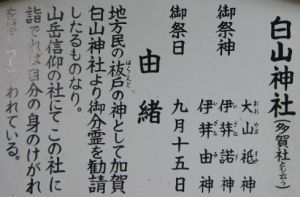 白山神社(多賀社とも云う)
御祭神
大山祗神
伊弉諾神
伊弉由神
御祭日 九月十五日
由緒
地方民の祓戸の神として加賀
白山神社より御分霊を勧請
したるものなり。
山岳信仰の社にてこの社に
詣でれば自分の身のけがれ
われている。